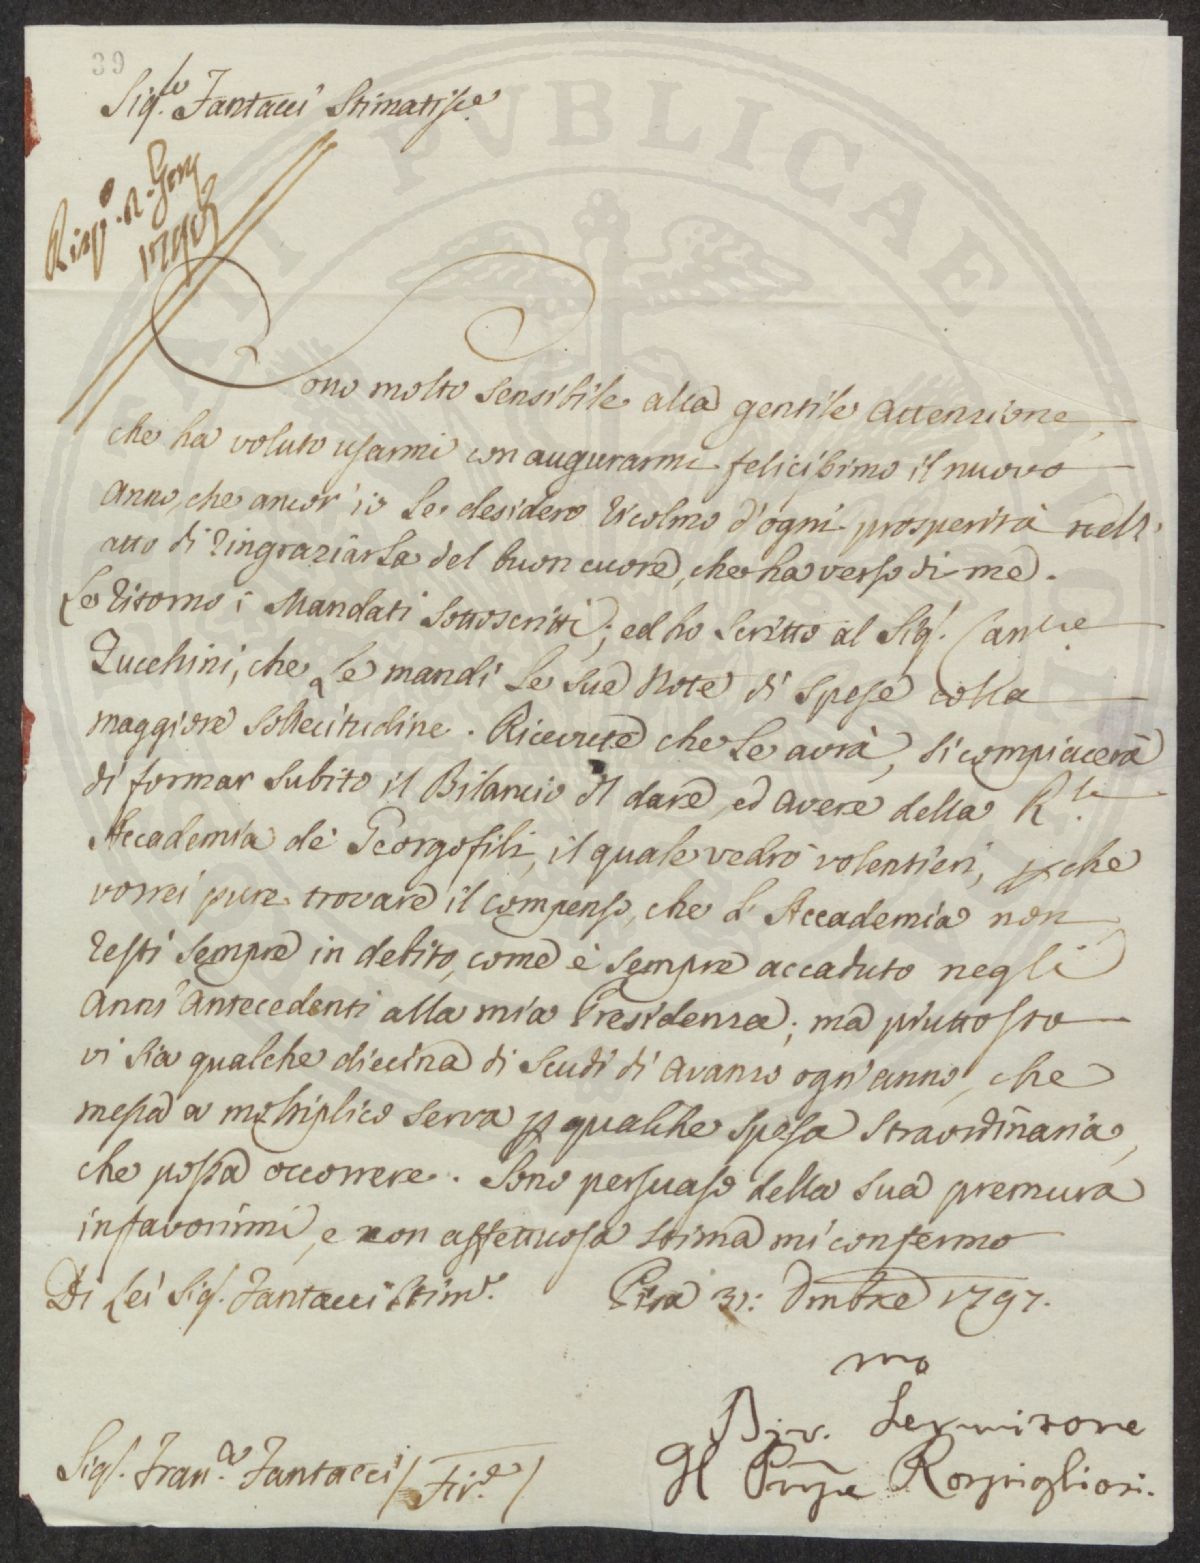 39
Sig.le Fantacci Stimatis.e
Risp.o a. Gen.
1798
Sono molto sensibile alla gentile attenzione,
che ha voluto usarmi con augurarmi felicissimo il nuovo
Anno, che ancor' io Le desidero ricolmo d'ogni prosperità nell'
atto di ringraziarLa del buon cuore, che ha verso di me.
Le ritorno i Mandati sottoscritti; ed ho scritto al Sig.r Can.re
Zucchini, che Le mandi Le sue Note di spese colla
maggiore sollecitudine. Ricevute che Le avrà, si compiacerà
di formar subito il Bilancio il dare, ed avere della R.le
Accademia de' Georgofili, il quale vedrò volentieri, pche
vorrei pure trovare il compenso, che l'Accademia non
resti sempre in debito, come è sempre accaduto negli
Anni antecedenti alla mia Presidenza; ma piuttosto
vi sia qualche diecina di Scudi di avanzo ogn'anno, che
messa a moltiplico serva p qualche spesa straordinaria,
che possa occorrere. Sono persuaso della sua premura
in favorirmi, e con affettuosa stima mi confermo
Di Lei Sig.r Fantacci Stim.o
Pisa 31: Dmbre 1797.
mo
Div. Servitore
Il Prnpe Rospigliosi.
Sig.r Fran.co Fantacci / Fir.e /
PVBLICAE